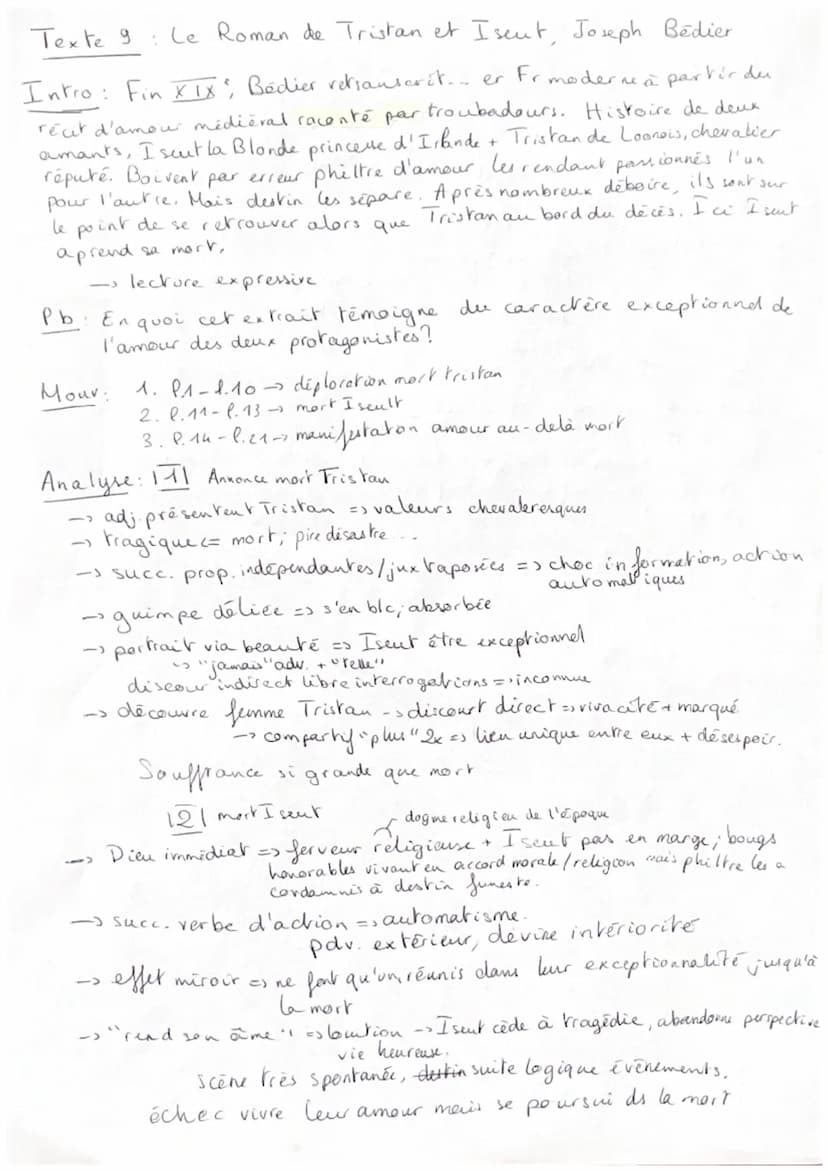 Texte 9 : Le Roman de Tristan et Iseut, Joseph Bédier
Intro : Fin XIXe, Bédier retranscrit... en Fr moderne à partir du
récit d'amour médiéval raconté par troubadours. Histoire de deux
amants, Iseut la Blonde princesse d'Irlande + Tristan de Loonois, chevalier
réputé. Boivent par erreur philtre d'amour les rendant passionnés l'un
pour l'autre. Mais destin les sépare. Après nombreux déboire, ils sont sur
le point de se retrouver alors que Tristan au bord du décès. Ici Iseut
aprend sa mort.
→ lecture expressive
Pb : En quoi cet extrait témoigne du caractère exceptionnel de
l'amour des deux protagonistes?
Mouv : 1. l.1-l.10 → déploration mort tristan
2. l.11-l.13 → mort Iseult
3. l.14-l.21 → manifestation amour au-delà mort
Analyse : |1| Annonce mort Tristan
→ adj. présentent Tristan => valeurs chevaleresques
→ tragique <= mort; pire désastre...
→ succ. prop. indépendantes/juxtaposées => choc information, action
automatiques
→ guimpe déliée => s'en blc; absorbée
→ portrait via beauté => Iseut être exceptionnel
↳ "jamais" adv. + "telle"
discour indirect libre interrogations => inconnue
→ découvre femme Tristan → discourt direct => vivacité + marqué
→ compartif "plus" 2x => lien unique entre eux + désespoir.
Souffrance si grande que mort
|2| mort Iseut
dogme religieu de l'époque
→ Dieu immédiat => ferveur religieuse + Iseut pas en marge;
honorables vivant en accord morale/religion mais philtre les a
condamnés à destin funeste.
→ succ. verbe d'action => automatisme.
pdv. extérieur, devine intériorité
→ effet miroir => ne font qu'un, réunis dans leur exceptionnalité jusqu'à
la mort
→ "rend son âme" => locution → Iseut cède à tragédie, abandonne perspective
vie heureuse.
scène très spontanée, destin suite logique évènements.
échec vivre leur amour mais se poursui ds la mort